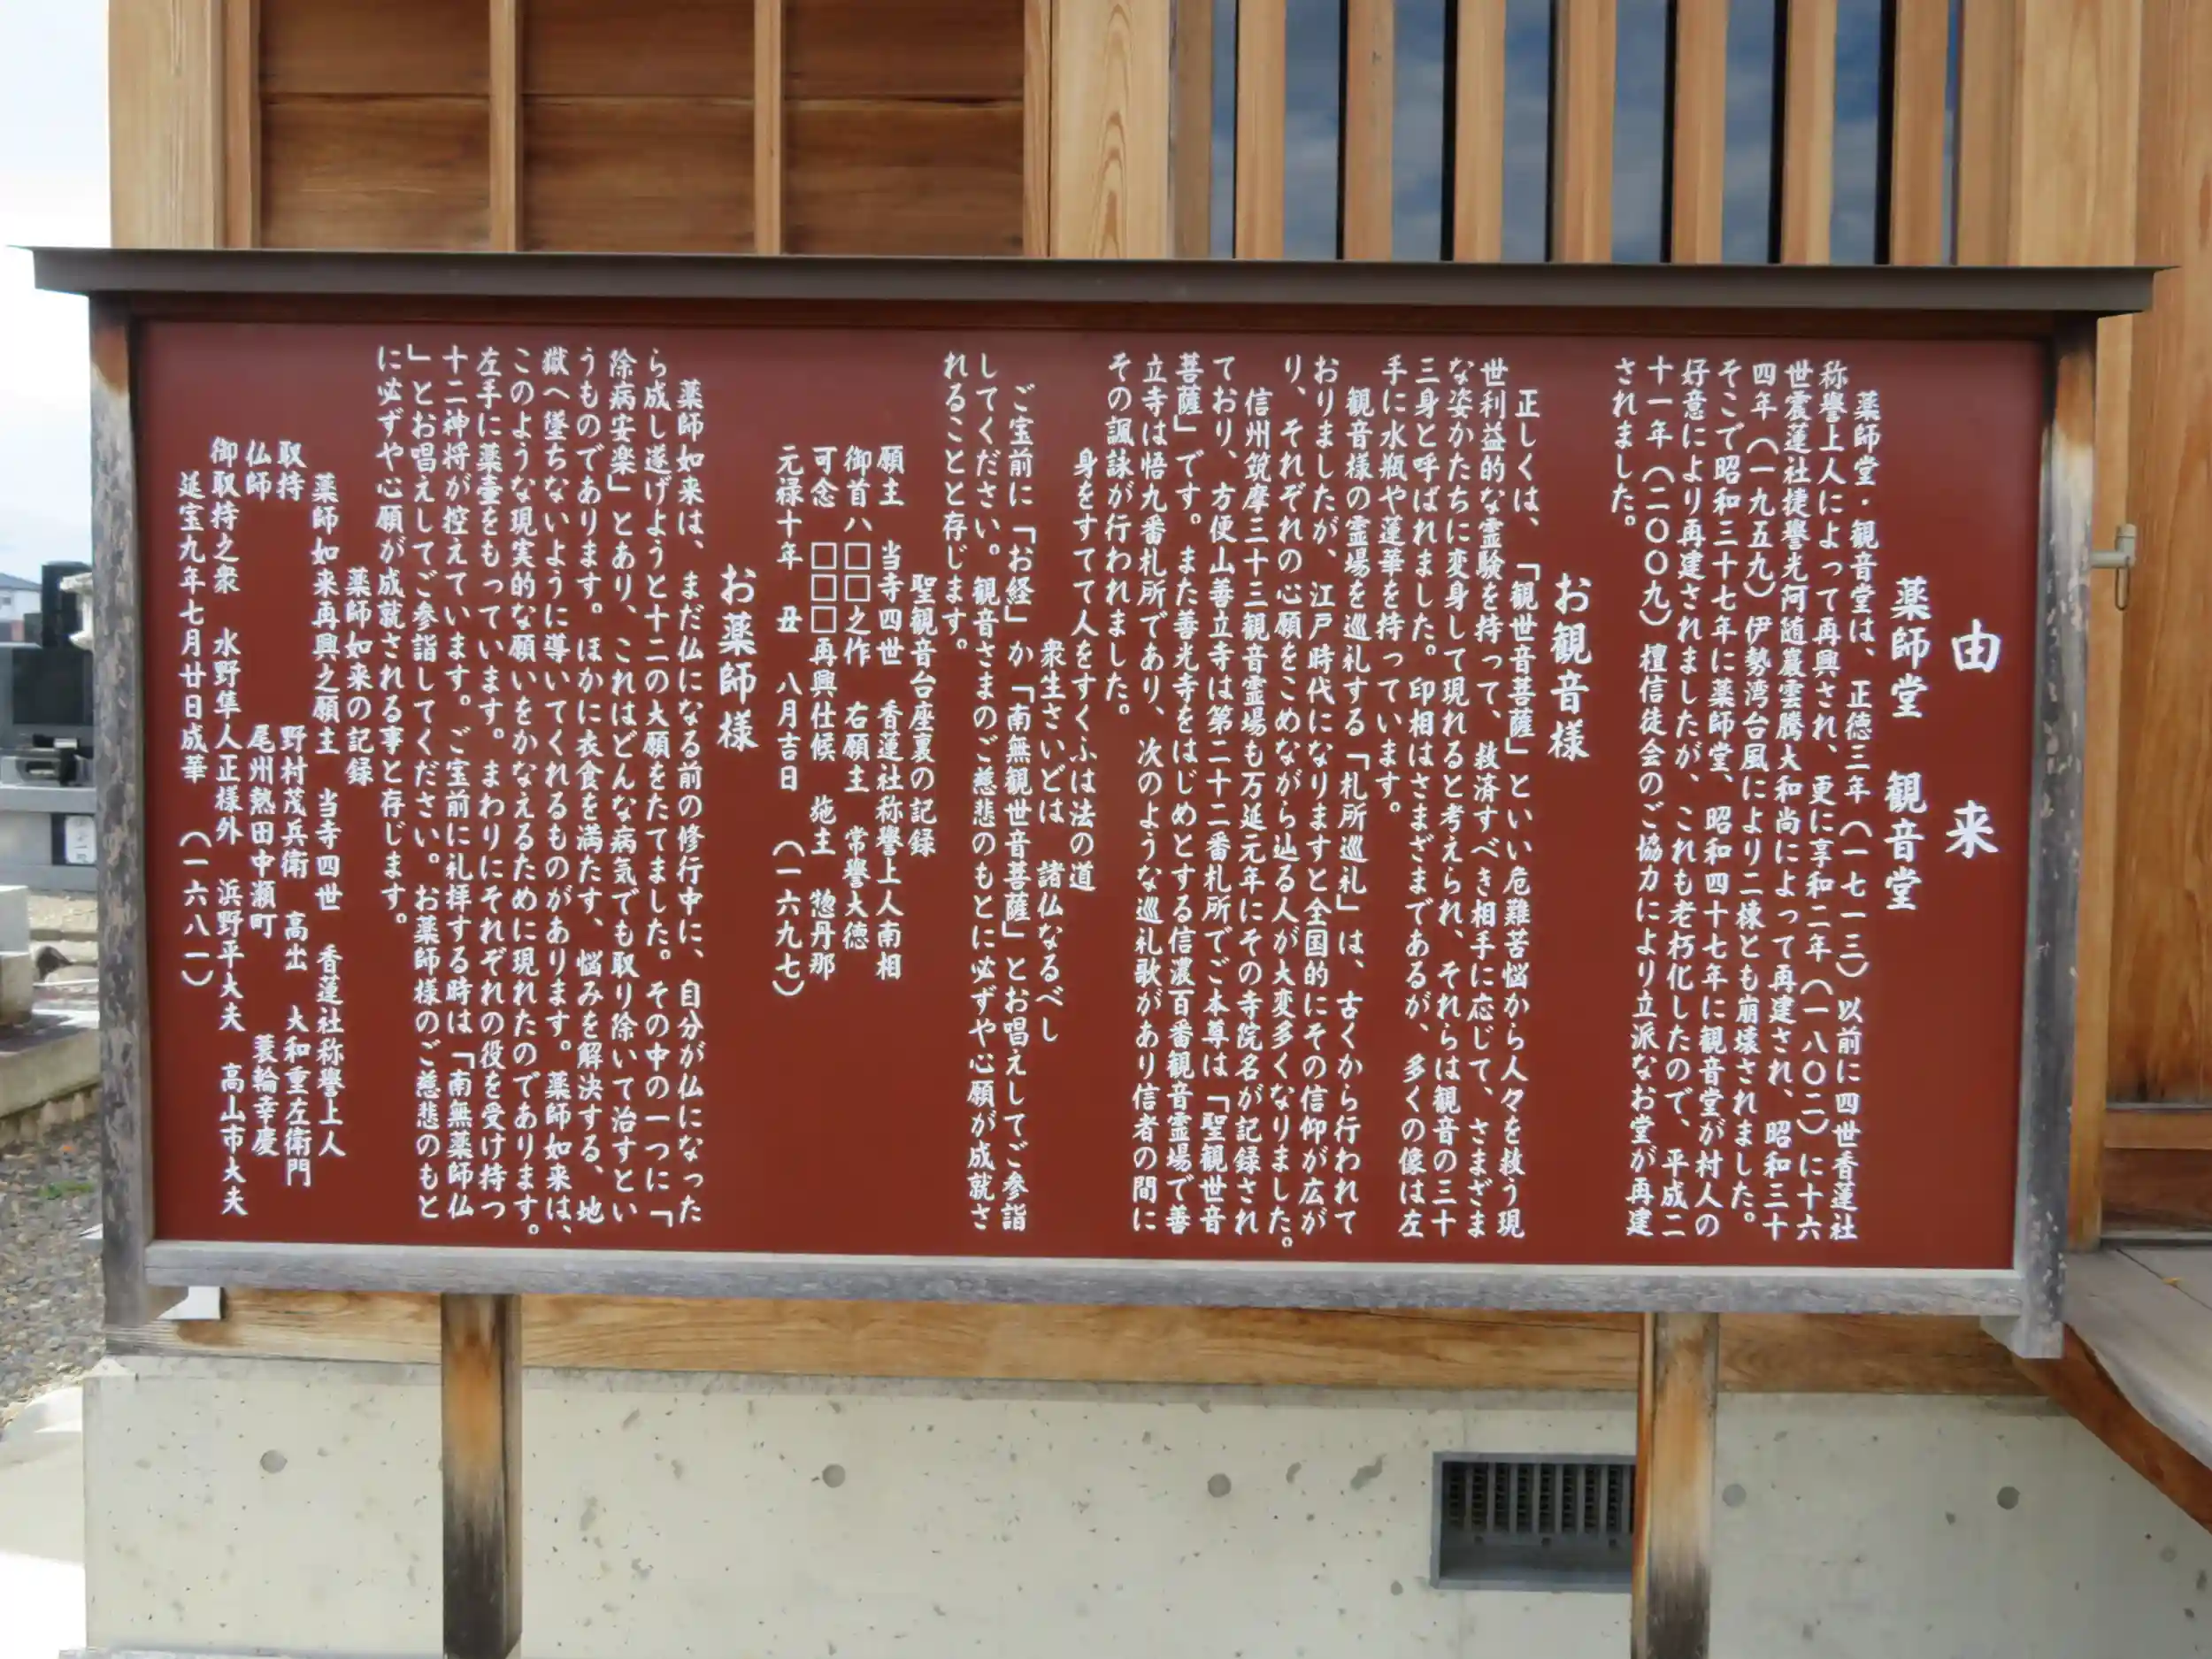 由来
薬師堂　観音堂
薬師堂・観音堂は、正徳三年（一七一三）以前に四世香蓮社
称譽上人によって再興され、更に享和二年（一八〇二）に十六
世震蓮社捷譽光阿随巖雲騰大和尚によって再建され、昭和三十
四年（一九五九）伊勢湾台風により二棟とも崩壊されました。
そこで昭和三十七年に薬師堂、昭和四十七年に観音堂が村人の
好意により再建されましたが、これも老朽化したので、平成二
十一年（二〇〇九）檀信徒会のご協力により立派なお堂が再建
されました。
お観音様
正しくは、「観世音菩薩」といい危難苦悩から人々を救う現
世利益的な霊験を持って、救済すべき相手に応じて、さまざま
な姿かたちに変身して現れると考えられ、それらは観音の三十
三身と呼ばれました。印相はさまざまであるが、多くの像は左
手に水瓶や蓮華を持っています。
観音様の霊場を巡礼する「札所巡礼」は、古くから行われて
おりましたが、江戸時代になりますと全国的にその信仰が広が
り、それぞれの心願をこめながら辿る人が大変多くなりました。
信州筑摩三十三観音霊場も万延元年にその寺院名が記録され
ており、方便山善立寺は第二十二番札所でご本尊は「聖観世音
菩薩」です。また善光寺をはじめとする信濃百番観音霊場で善
立寺は悟九番札所であり、次のような巡礼歌があり信者の間に
その諷詠が行われました。
身をすてて人をすくふは法の道
衆生さいどは　諸仏なるべし
ご宝前に「お経」か「南無観世音菩薩」とお唱えしてご参詣
してください。観音さまのご慈悲のもとに必ずや心願が成就さ
れることと存じます。
聖観音台座裏の記録
願主　当寺四世　香蓮社称譽上人南相
御首八□□之作　右願主　常譽大徳
可念　□□□再興仕候　施主　惣丹那
元禄十年　丑　八月吉日　（一六九七）
お薬師様
薬師如来は、まだ仏になる前の修行中に、自分が仏になった
ら成し遂げようと十二の大願をたてました。その中の一つに「
除病安楽」とあり、これはどんな病気でも取り除いて治すとい
うものであります。ほかに衣食を満たす、悩みを解決する、地
獄へ墜ちないように導いてくれるものがあります。薬師如来は、
このような現実的な願いをかなえるために現れたのであります。
左手に薬壷をもっています。まわりにそれぞれの役を受け持つ
十二神将が控えています。ご宝前に礼拝する時は「南無薬師仏
」とお唱えしてご参詣してください。お薬師様のご慈悲のもと
に必ずや心願が成就される事と存じます。
薬師如来の記録
薬師如来再興之願主　当寺四世　香蓮社称譽上人
取持　野村茂兵衛　高出　大和重左衛門
仏師　尾州熱田中瀬町　蓑輪幸慶
御取持之衆　水野隼人正様外　浜野平大夫　高山市大夫
延宝九年七月廿日成華　（一六八一）